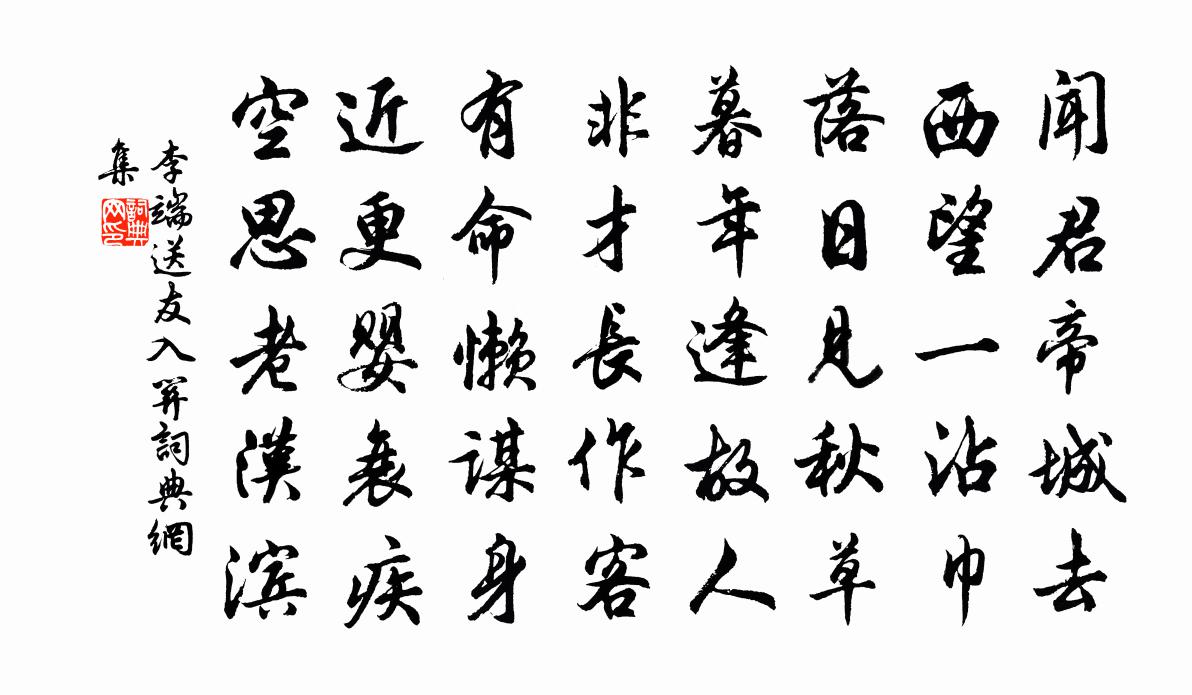 闻君帝城去
西望一沾巾
落日见秋草
暮年逢故人
非才長作客
有命懒谋身
近更婴衰疾
空思老漢滨
李端送友入関詞典網
集
詞典
网印